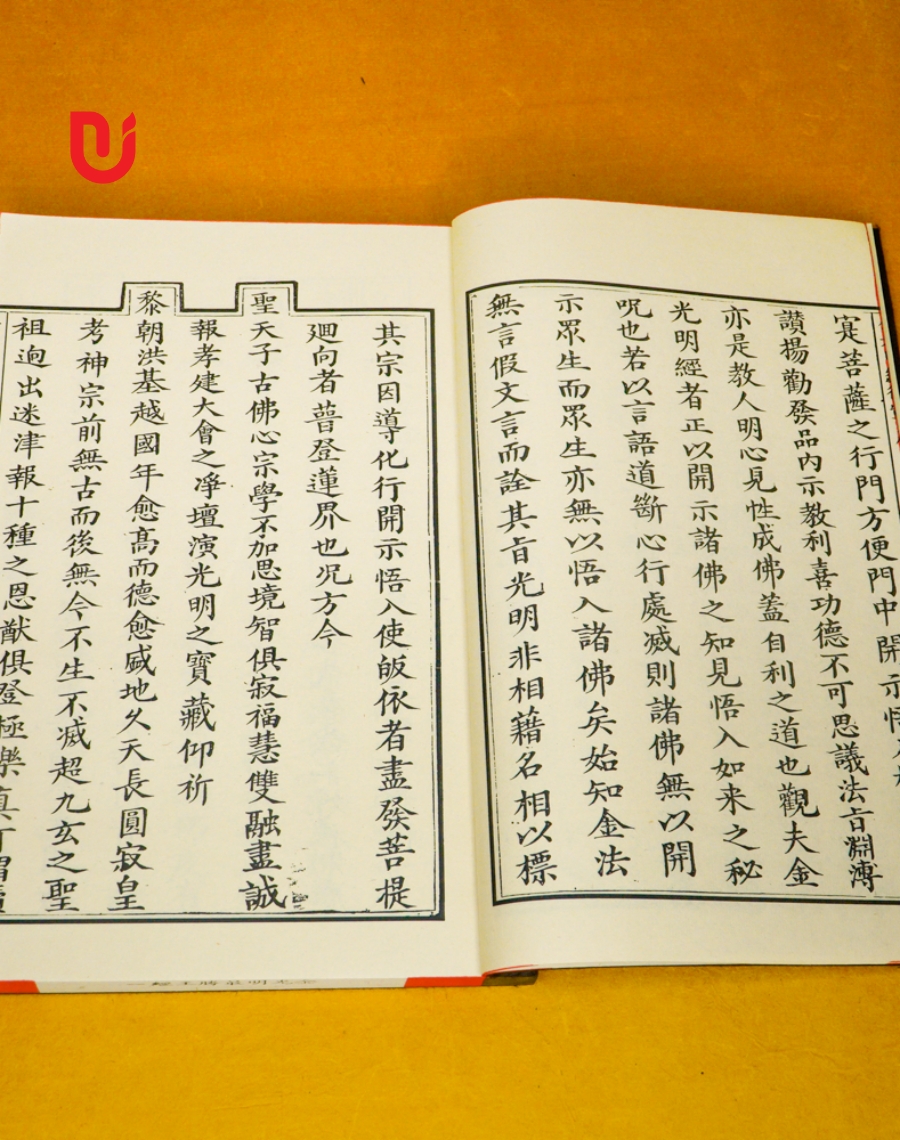 寔菩薩之行門方便門中開示悟入
讚揚勸發品内示教利喜功德不可思議法㫖淵溥
亦是教人明心見性成佛蓋自利之道也觀夫金
光明經者正以開示諸佛之知見悟入如来之秘
呪也若以言語道斷心行處滅則諸佛無以開
示眾生而眾生亦無以悟入諸佛矣始知金法
無言假文言而詮其㫖光明非相藉名相以標
其宗因導化行開示悟入使皈依者盡發菩提
廻向者普登蓮界也况方今
聖天子古佛心宗學不加思境智俱寂福慧雙融盡誠
報孝建大會之凈壇演光明之寶藏仰祈
黎朝洪基越國年愈髙而德愈盛地久天長圓寂皇
考神宗前無古而後無今不生不滅超九玄之聖
祖逈出迷津報十種之恩猷俱登極樂真可謂